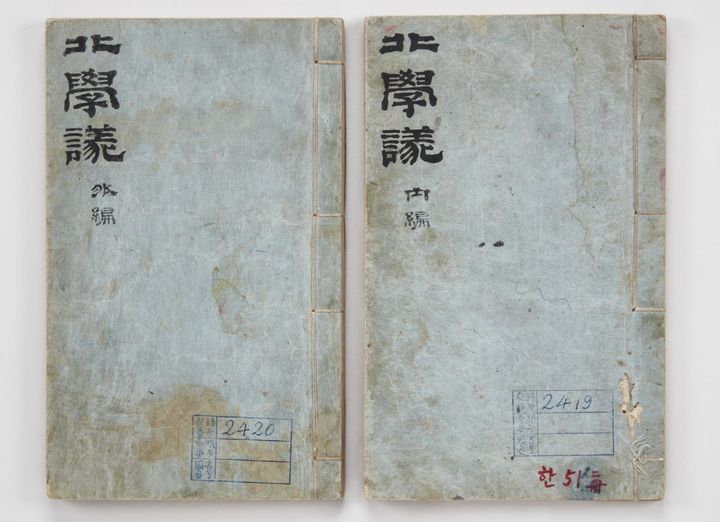 北學議
外編
2420
北學議
內編
2419
한 51 二冊